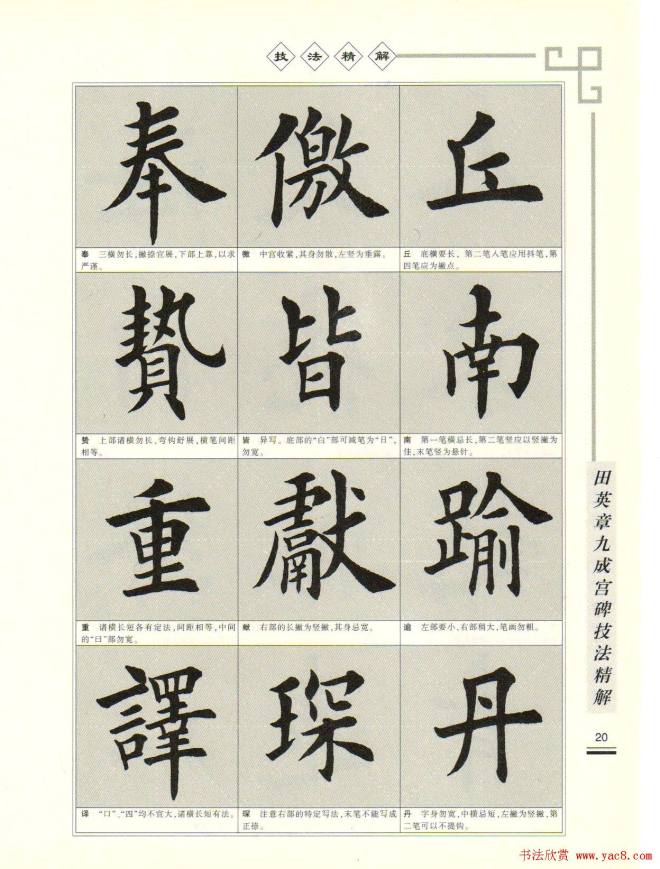 技法精解
奉
儌
丘
奉 三横勿长，撇捺宜展，下部上靠，以求
严谨。
儌 中宫收紧，其身勿散，左竖为垂露。
丘 底横要长，第二笔入笔应用抖笔，第
四笔应为撇点。
贄
皆
南
贽 上部诸横勿长，弯钩舒展，横笔间距
相等。
皆 异写。底部的“白”部可减笔为“日”，
勿宽。
南 第一笔横忌长，第二笔竖应以竖撇为
佳，末笔竖为悬针。
重
獻
踰
重 诸横长短各有定法，间距相等，中间
的“日”部勿宽。
献 右部的长撇为竖撇，其身忌宽。
逾 左部要小，右部稍大，笔画勿粗。
譯
琛
丹
译 “口”、“四”均不宜大，诸横长短有法。
琛 注意右部的特定写法，末笔不能写成
正捺。
丹 字身勿宽，中横忌短，左撇为竖撇，第
二笔可以不提钩。
田英章九成宫碑技法精解
20
书法欣赏 www.yac8.com